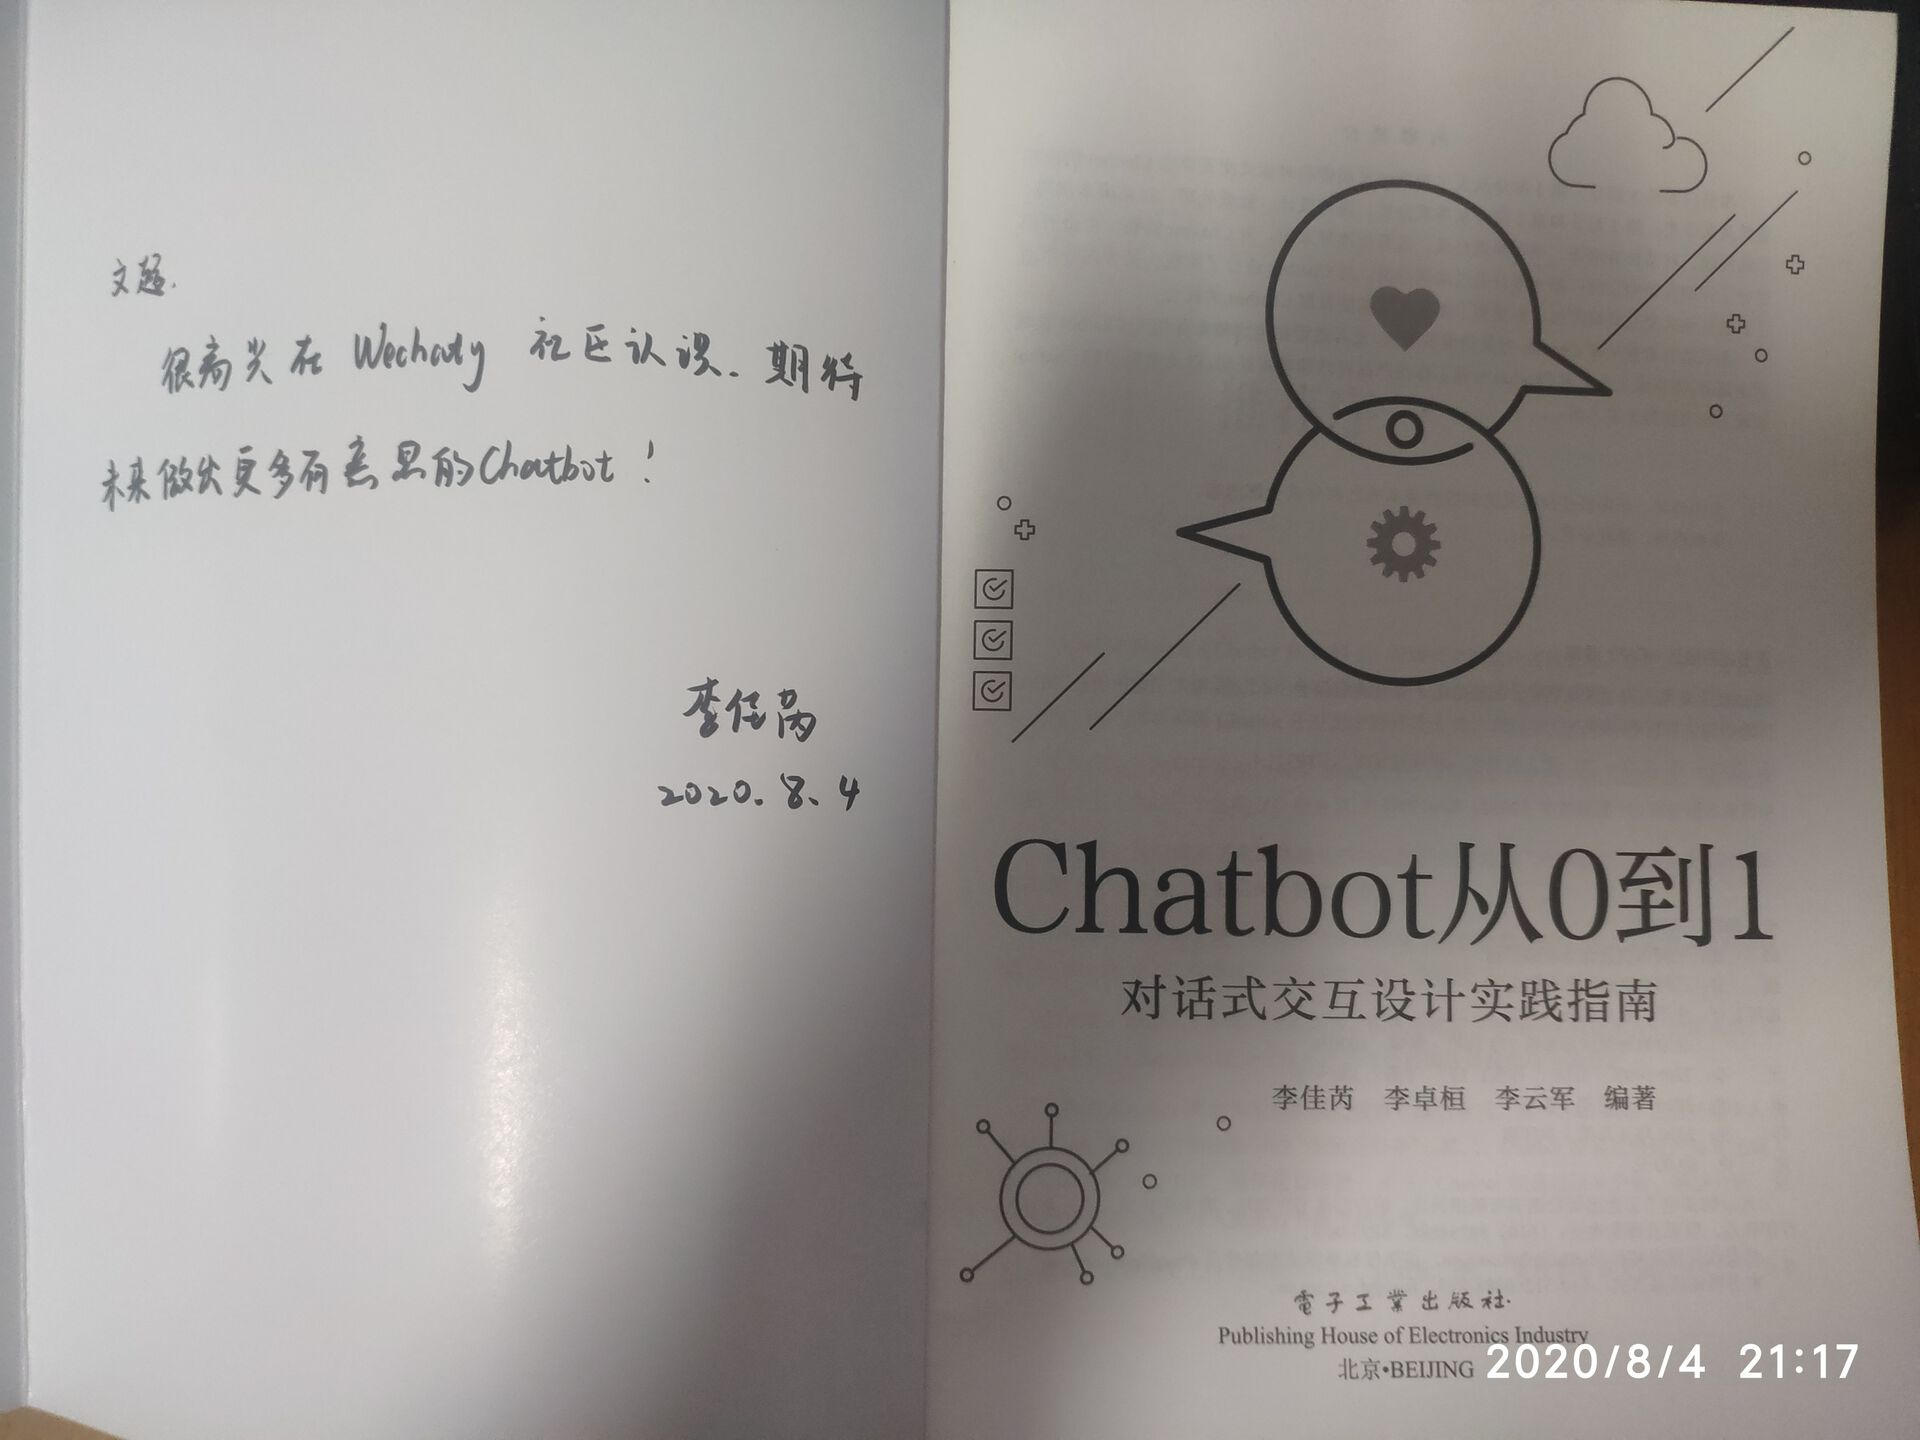 文超.
很高兴在 Wechaty 社区认识. 期待
未来做出更多有意思的Chatbot！
李佳芮
2020.8.4
Chatbot从0到1
对话式交互设计实践指南
李佳芮 李卓桓 李云军 编著
電子工業出版社
Publishing House of Electronics Industry
北京•BEIJING
2020/8/4 21:17